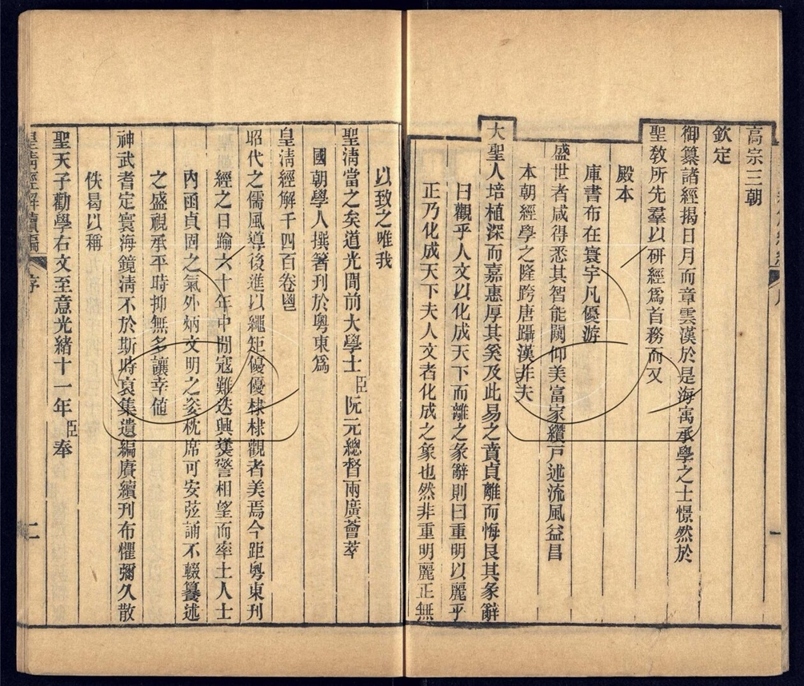 高宗三朝
欽定
御纂諸經揭日月而章雲漢於是海寓承學之士憬然於
聖教所先羣以研經爲首務而又
殿本
庫書布在寰宇凡優游
盛世者咸得悉其智能闚仰美富家纘戸述流風益昌
本朝經學之隆跨唐躡漢非夫
大聖人培植深而嘉惠厚其奚及此易之賁貞離而悔艮其彖辭
曰觀乎人文以化成天下而離之彖辭則曰重明以麗乎
正乃化成天下夫人文者化成之象也然非重明麗正無
一
以致之唯我
聖淸當之矣道光間前大學士臣阮元總督兩廣薈萃
國朝學人撰箸刊於粵東爲
皇淸經解千四百卷鬯
昭代之儒風導後進以繩矩優優棣棣觀者美焉今距粵東刊
經之日踰六十年中閒寇難迭興燹警相望而率土人士
內函貞固之氣外炳文明之姿枕席可安弦誦不輟纂述
之盛視承平時抑無多讓幸値
神武耆定寰海鏡淸不於斯時裒集遺編賡續刊布懼彌久散
佚曷以稱
聖天子勸學右文至意光緒十一年臣奉
皇淸經解續編
序
二